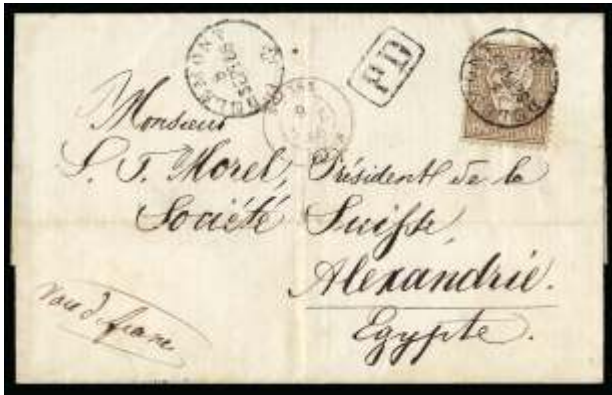 PD
Monsieur
S. T. Morel, Président de la
Société Suisse
Alexandrie.
Egypte.